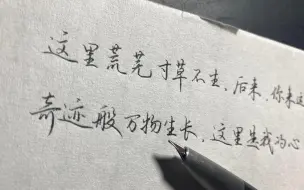 这里荒芜寸草不生，后来，你来这
奇迹般万物生长，这里是我的心